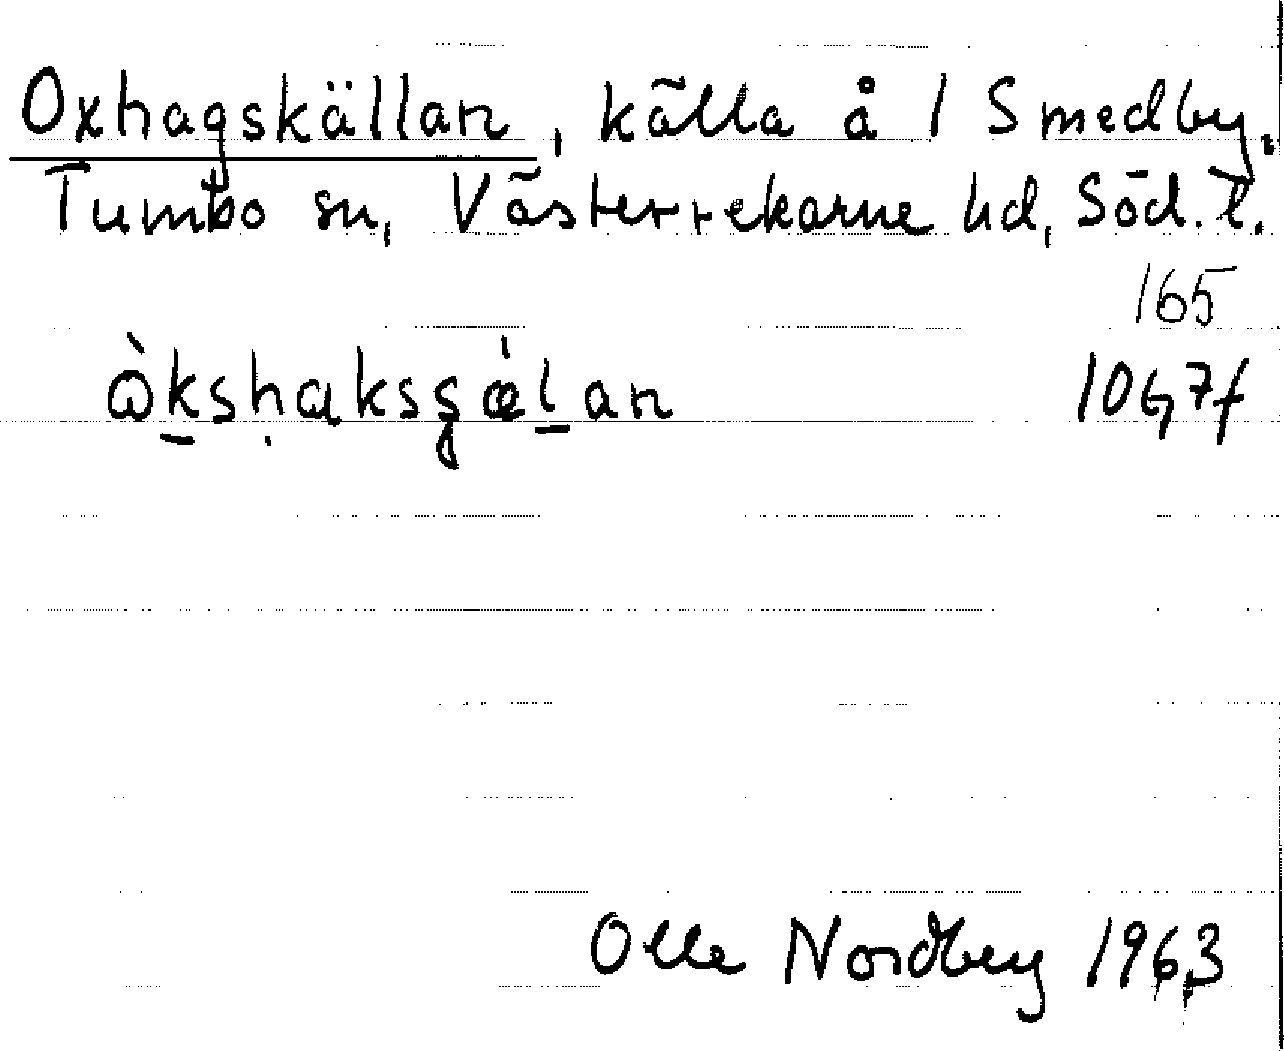 Oxhagskällan, källa å 1 Smedby.
Tumbo sn, Västerrekarne hd, Söd. l.
165
10G7f
Olle Nordberg 1963